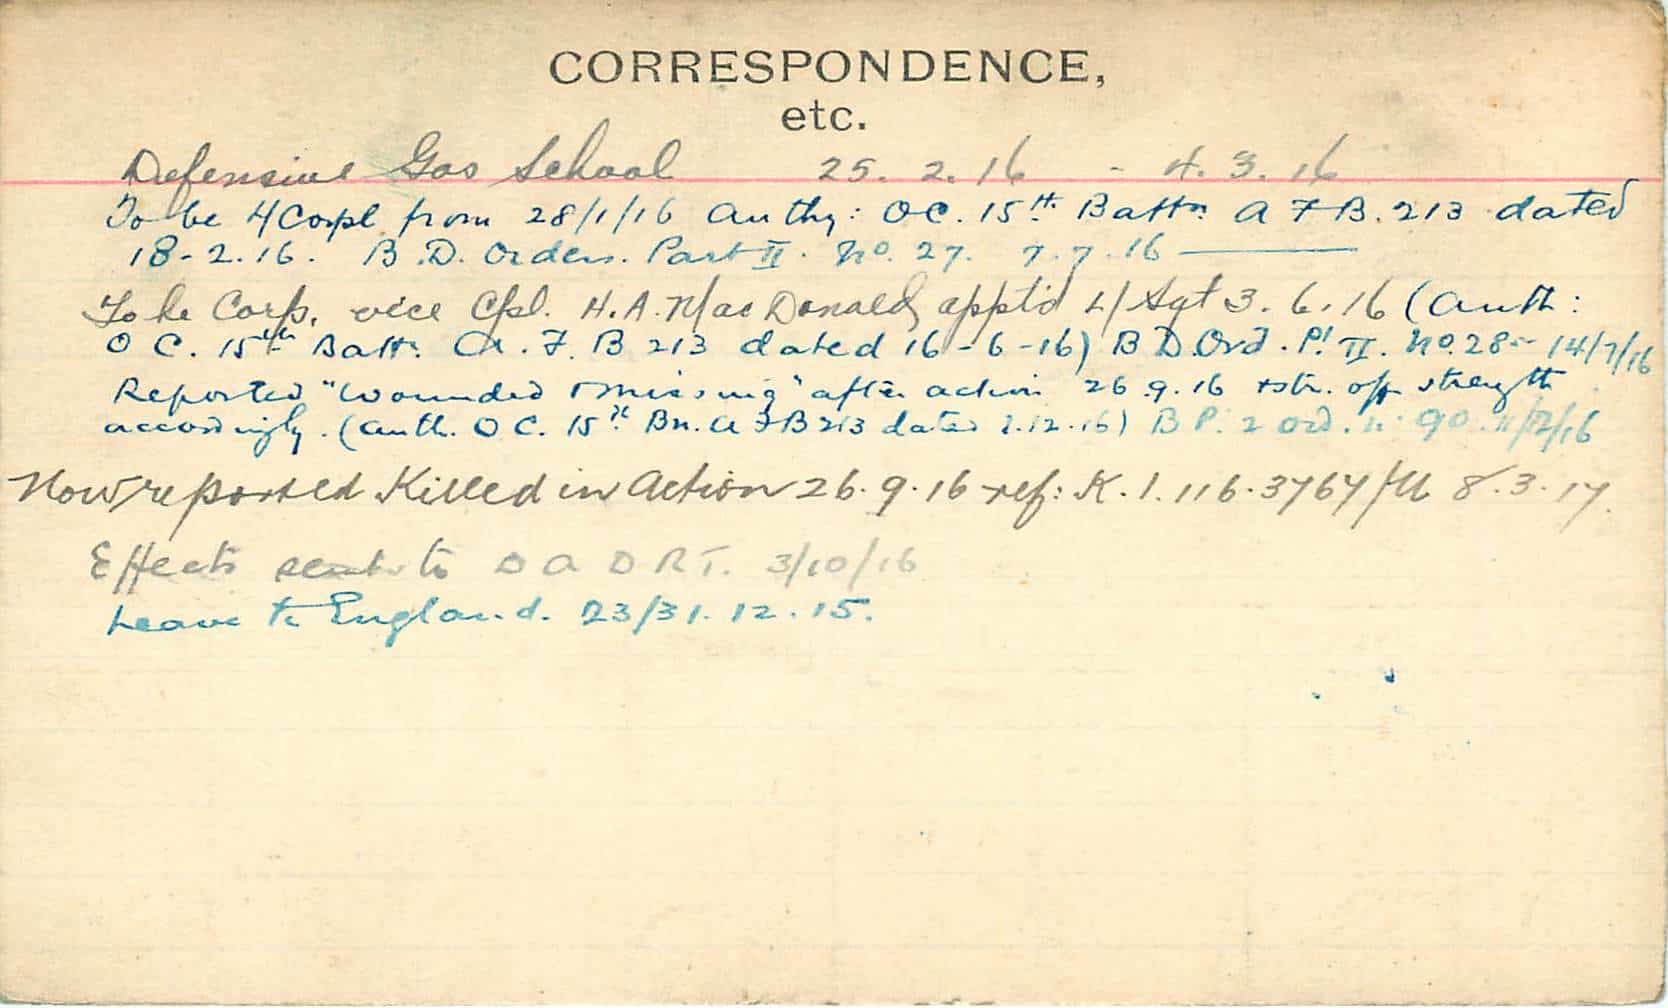 CORRESPONDENCE,
etc.
Defensive Gas School 25. 2. 16 - 4. 3. 16
To be L/Corpl from 28/1/16 Authy: OC. 15th Battn A F B. 213 dated
18-2.16. B.D. Orders. Part II. No. 27. 7.7.16
To be Corp. vice Cpl. H.A. MacDonald, appt'd L/Sgt 3. 6. 16 (Auth:
O C. 15th Battn A. F. B 213 dated 16-6-16) B D. Ord. Pt II. No. 28 - 14/7/16
Reported "Wounded & missing" after action 26.9.16 & str. off strength
accordingly. (Auth. O C. 15th Bn. A F B 213 dated 2.12.16) B P. 2 Ord. n. 90. 11/12/16
Now reported Killed in Action 26.9.16 ref: K.1.116.3767/M 8.3.17.
Effects sent to D A D R T. 3/10/16
Leave to England. 23/31.12.15.